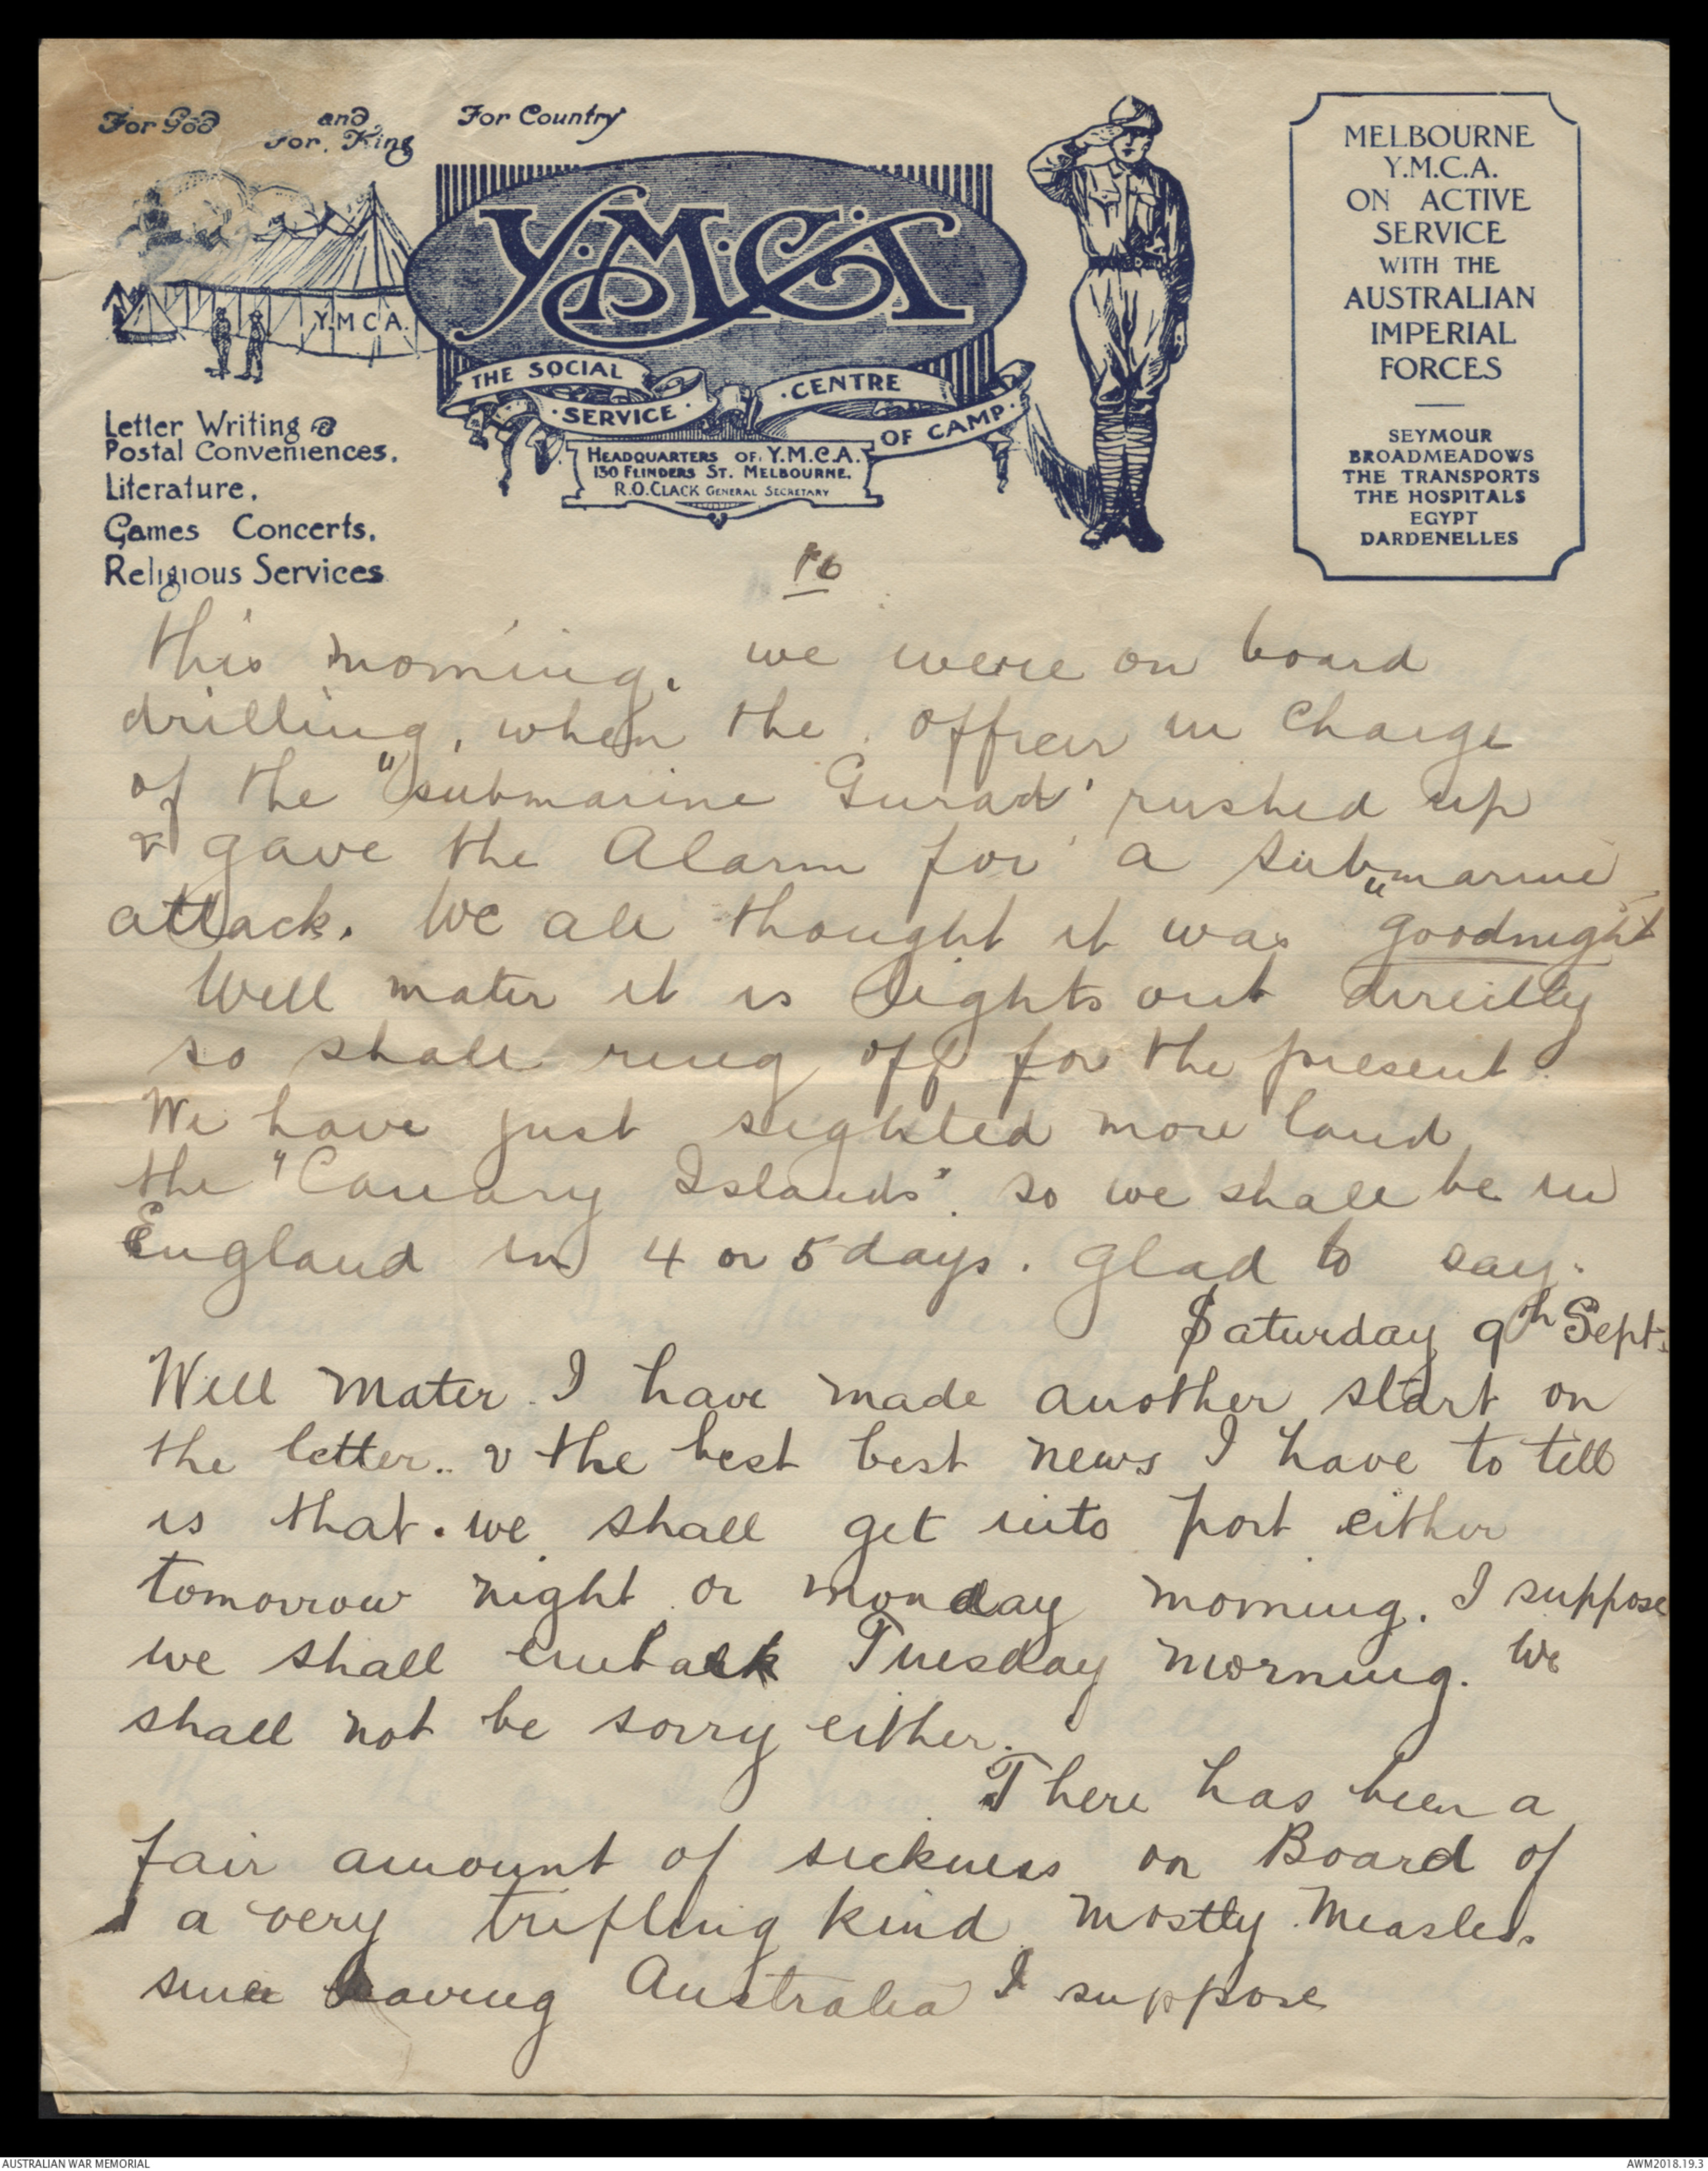 For God and For King For Country
Y.M.C.A
Y.M.C.A.
THE SOCIAL SERVICE CENTRE OF CAMP
HEADQUARTERS OF Y.M.C.A.
130 FLINDERS ST. MELBOURNE.
R.O. CLACK GENERAL SECRETARY
Letter Writing &
Postal Conveniences,
Literature,
Games Concerts,
Religious Services
MELBOURNE
Y.M.C.A.
ON ACTIVE
SERVICE
WITH THE
AUSTRALIAN
IMPERIAL
FORCES
SEYMOUR
BROADMEADOWS
THE TRANSPORTS
THE HOSPITALS
EGYPT
DARDENELLES
this morning. we were on board
drilling, when the officer in charge
of the "submarine Gurad" rushed up
& gave the Alarm for a submarine
attack. We all thought it was "goodnight
Well mater it is lights out directly
so shall ring off for the present.
We have just sighted more land
the "Canary Islands". so we shall be in
England in 4 or 5 days. glad to say.
Saturday 9th Sept.
Well Mater I have made another start on
the letter.. & the best best news I have to tell
is that. we shall get into port either
tomorrow night or monday morning. I suppose
we shall embark Tuesday morning. We
shall not be sorry either.
There has been a
fair amount of sickness on Board of
a very trifling kind mostly Measles.
since leaving Australia I suppose
AUSTRALIAN WAR MEMORIAL
AWM2018.19.3